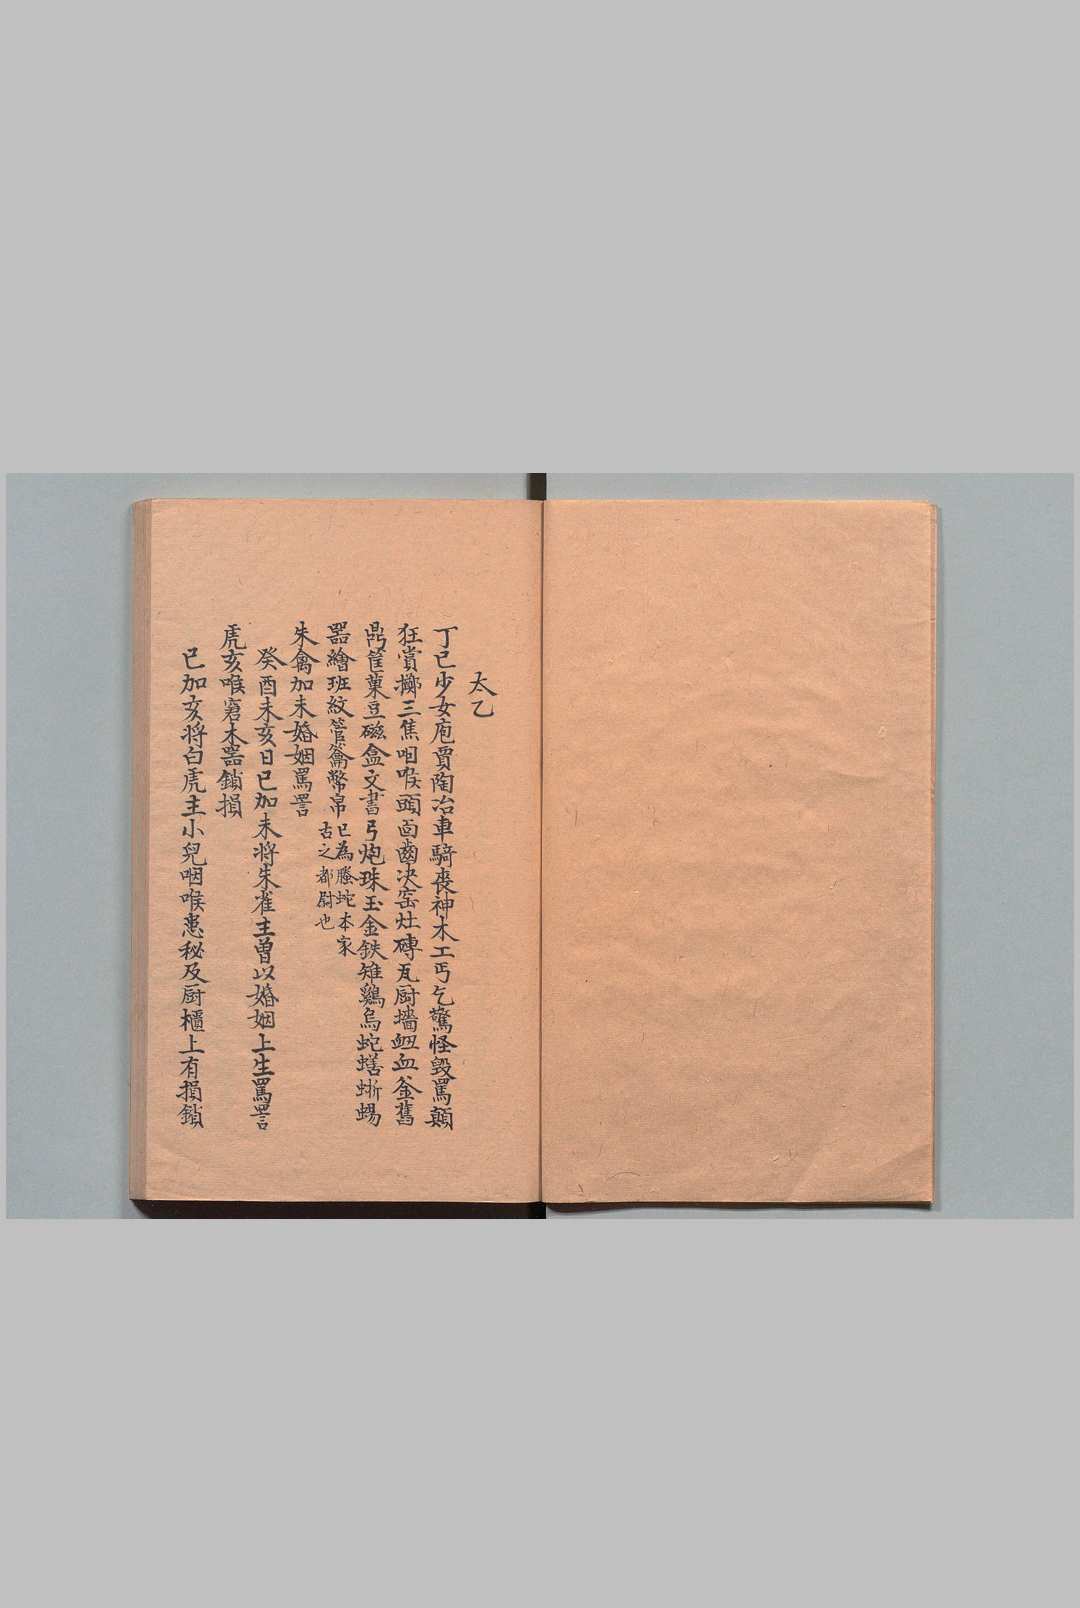 太乙
丁巳少女庖賈陶冶車騎喪神木工丐乞驚怪毀罵顛
狂賞擲三焦咽喉頭面齒決窑灶磚瓦厨墻衄血釜舊
鼎筐菓豆磁盒文書弓炮珠玉金鉄雉鷄烏蛇蟮蜥蜴
器繪班紋管籥幣帛巳為螣蛇本家
古之都尉也
朱禽加未婚姻罵詈
癸酉未亥日巳加未将朱雀主曽以婚姻上生罵詈
虎亥喉窘木器鎖損
巳加亥将白虎主小兒咽喉患秘及厨櫃上有損鎖